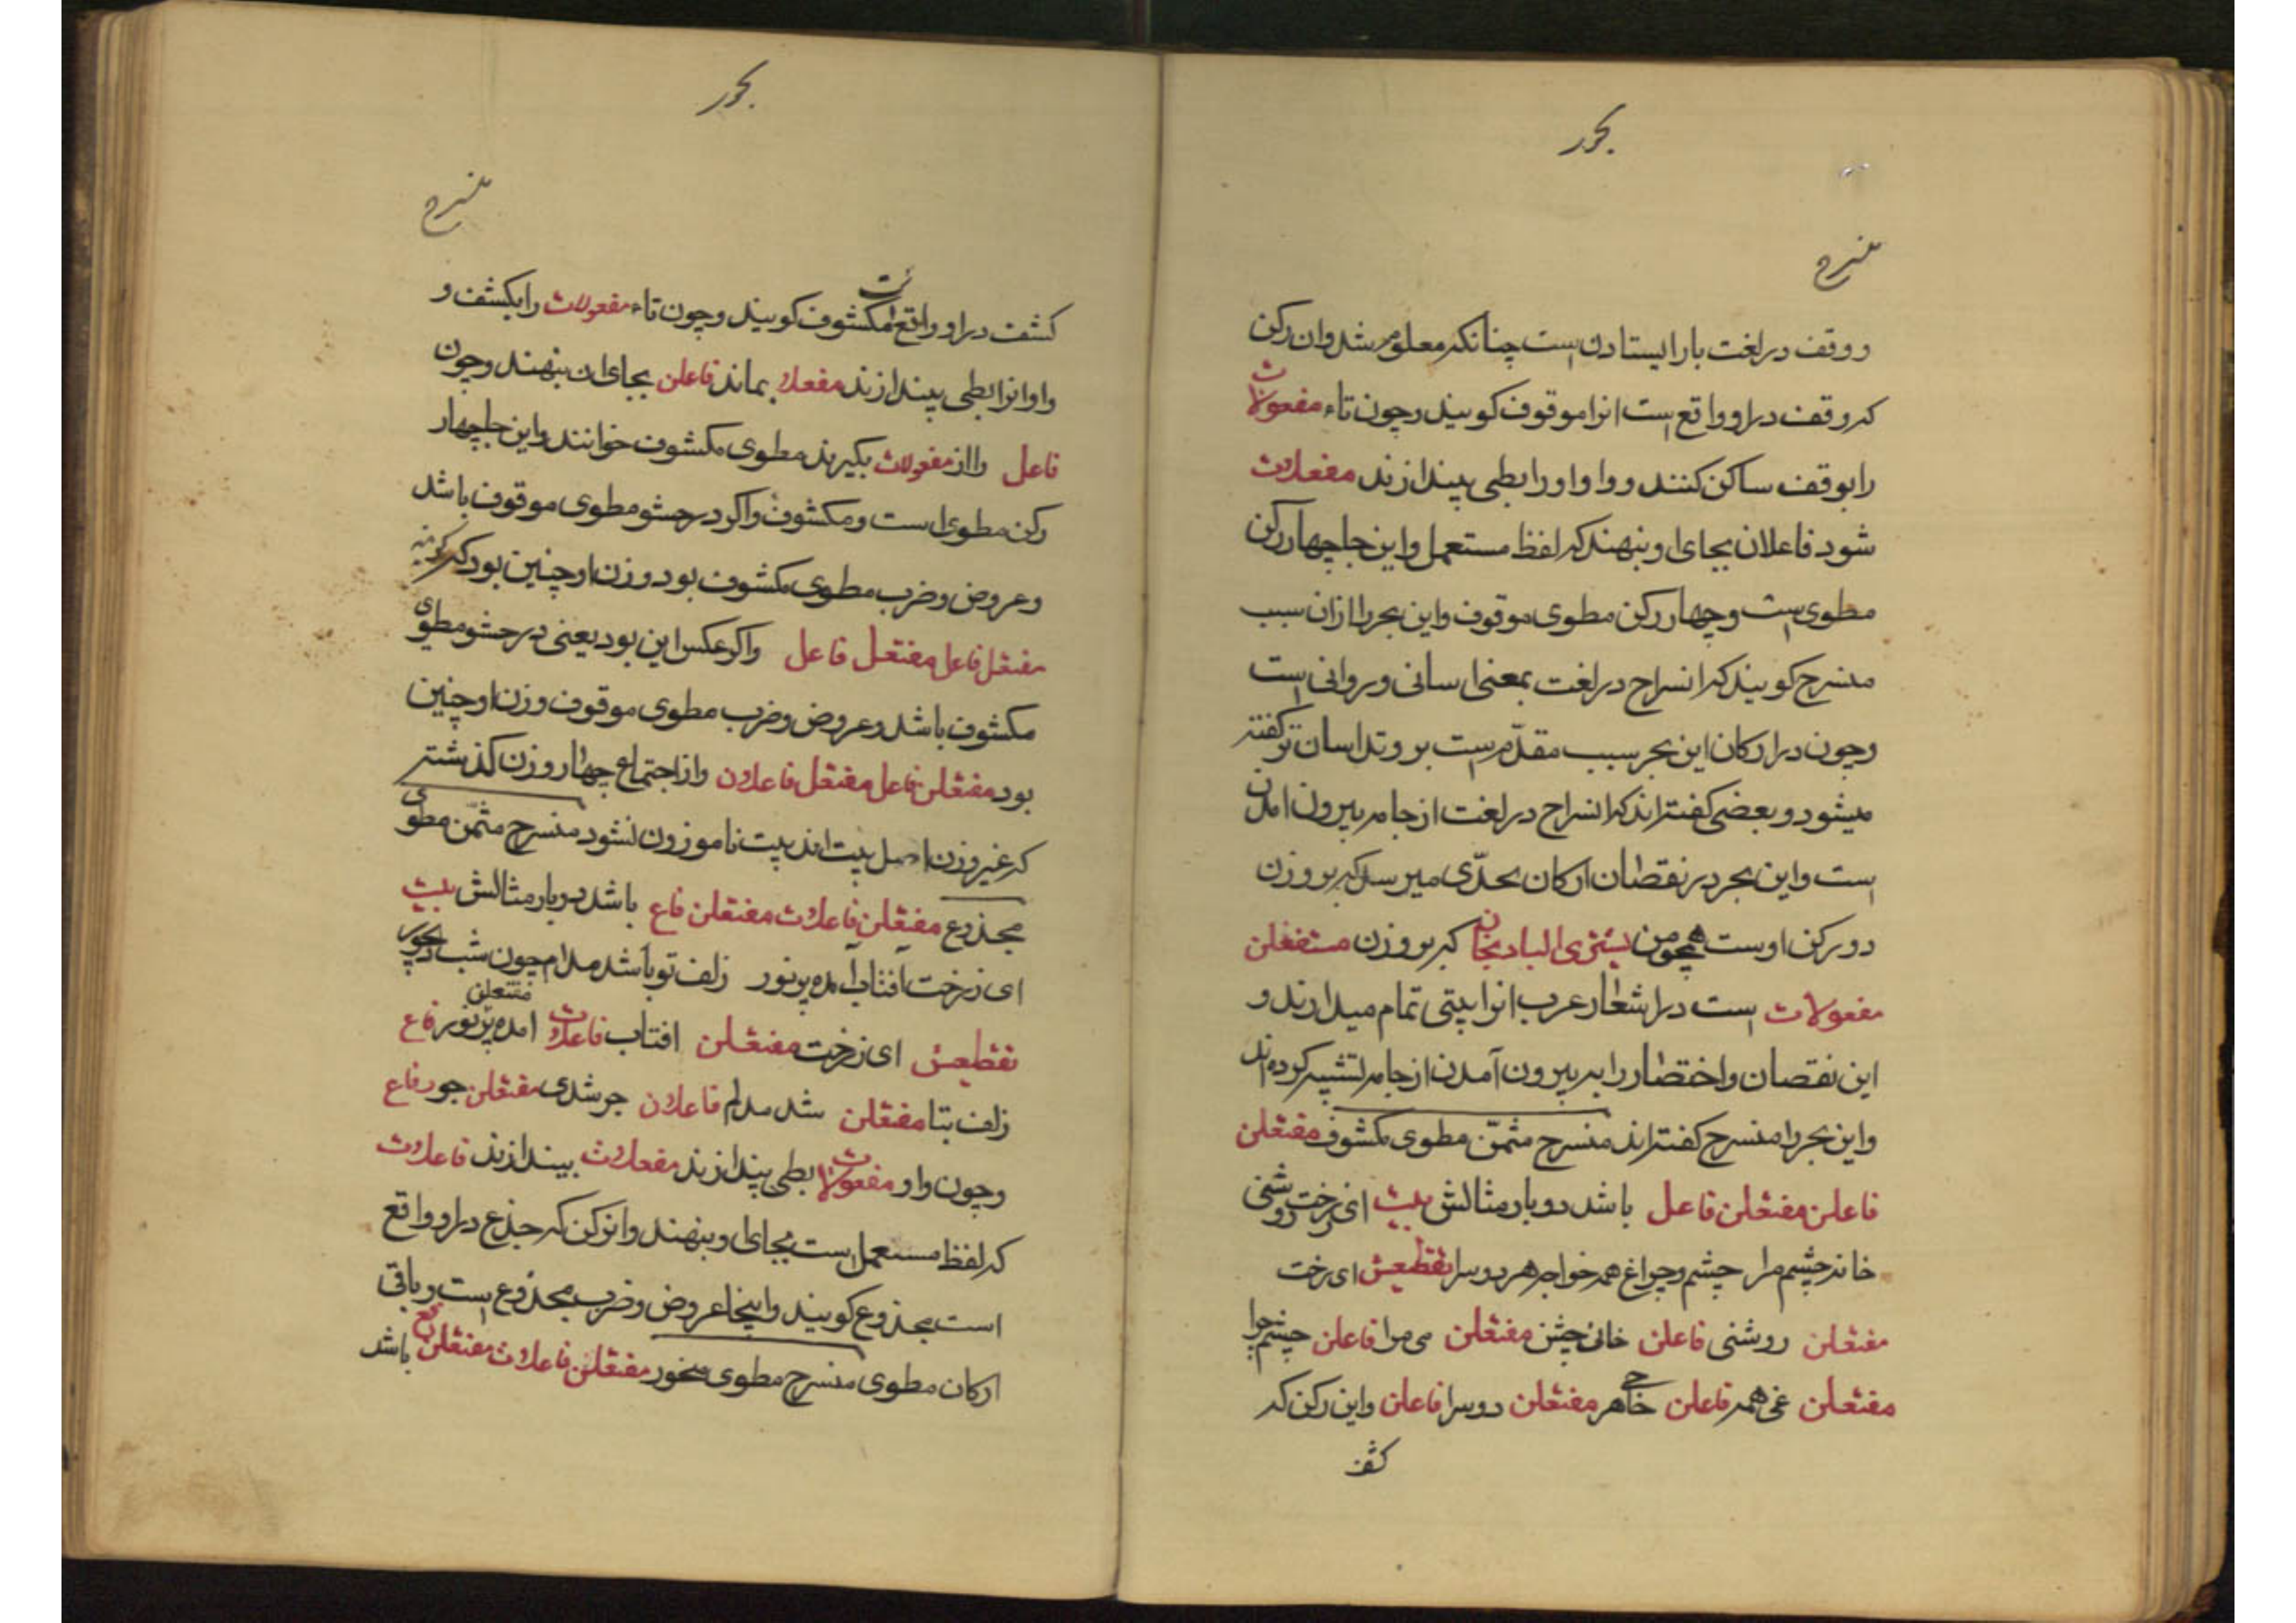 بحور
منسرح
و وقف در لغت باز ایستادن است چنانکه معلوم شد وان رکن
که وقف در او واقع است انرا موقوف کویند و چون تاء مفعولات
را بوقف ساکن کنند و واو او را بطی بیندازند مفعلات
شود فاعلان بجای او بنهند که لفظ مستعمل و این جا چهار رکن
مطوی است و چهار رکن مطوی موقوف و این بحر را از ان سبب
منسرح کویند که انسراح در لغت بمعنی اسانی و روانی است
و چون در ارکان این بحر سبب مقدّم است بر وتد اسان تر کفته
میشود و بعضی کفته اند که انسراح در لغت از جامه بیرون امدن
است و این بحر در نقصان ارکان بحدّی میرسد که بر وزن
دو رکن اوست همچو من یشتری الباذنجان که بر وزن مستفعلن
مفعولات است در اشعار عرب انرا بیتی تمام میدارند و
این نقصان و اختصار را به بیرون آمدن از جامه تشبیه کرده اند
و این بحر را منسرح کفته اند منسرح مثمّن مطوی مکشوف مفتعلن
فاعلن مفتعلن فاعل باشد دو بار مثالش بیت ای رخت روشنی
خانه چشم مرا چشم و چراغ همه خواجه هر دو سرا تقطیعش ای رخت
مفتعلن روشنی فاعلن خانئ چش مفتعلن می مرا فاعلن چشم چرا
مفتعلن غی همه فاعلن خاجه هر مفتعلن دو سرا فاعلن و این رکن که
کشف
بحور
منسرح
کشف در او واقع است مکشوف کویند و چون تاء مفعولات را بکشف و
واو انرا بطی بیندازند مفعلا بماند فاعلن بجای ان بنهند و چون
فاعل را از مفعولات بکیرند مطوی مکشوف خوانند و این جا چهار
رکن مطوی است و مکشوف و اکر در حشو مطوی موقوف باشد
و عروض و ضرب مطوی مکشوف بود وزن او چنین بود که
مفتعل فاعل مفتعل فاعل و اکر عکس این بود یعنی در حشو مطوی
مکشوف باشد و عروض و ضرب مطوی موقوف وزن او چنین
بود مفتعلن فاعل مفتعل فاعلان و از اجتماع چهار وزن کذشته
که غیر وزن اصل بیت اند بیت ناموزون نشود منسرح مثمّن مطوی
مجذوع مفتعلن فاعلات مفتعلن فاع باشد دو بار مثالش بیت
ای ز رخت آفتاب آمده پر نور زلف تو باشد مدام چون شب دیجور
تقطیعش ای ز رخت مفتعلن افتاب فاعلات امده پر مفتعلن نور فاع
زلف بتا مفتعلن شد مدام فاعلان جو شدی مفتعلن جور فاع
و چون واو مفعولات بطی بیندازند مفعلات بیندازند فاعلات
که لفظ مستعمل است بجای او بنهند و انرکن که جذع در او واقع
است مجذوع کویند و اینجا عروض و ضرب مجذوع است و باقی
ارکان مطوی منسرح مطوی منحور مفتعلن فاعلات مفتعلن فع باشد